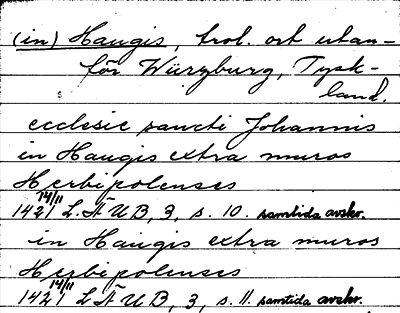 (in) Haugis, trol. ort utan-
för Würzburg, Tysk-
land.
ecclesie sancti Johannis
in Haugis extra muros
Herbipolenses
14/11
1421 L. Ä U B, 3, s. 10. samtida avskr.
in Haugis extra muros
Herbipolenses
14/11
1421 L Ä U B, 3, s. 11. samtida avskr.